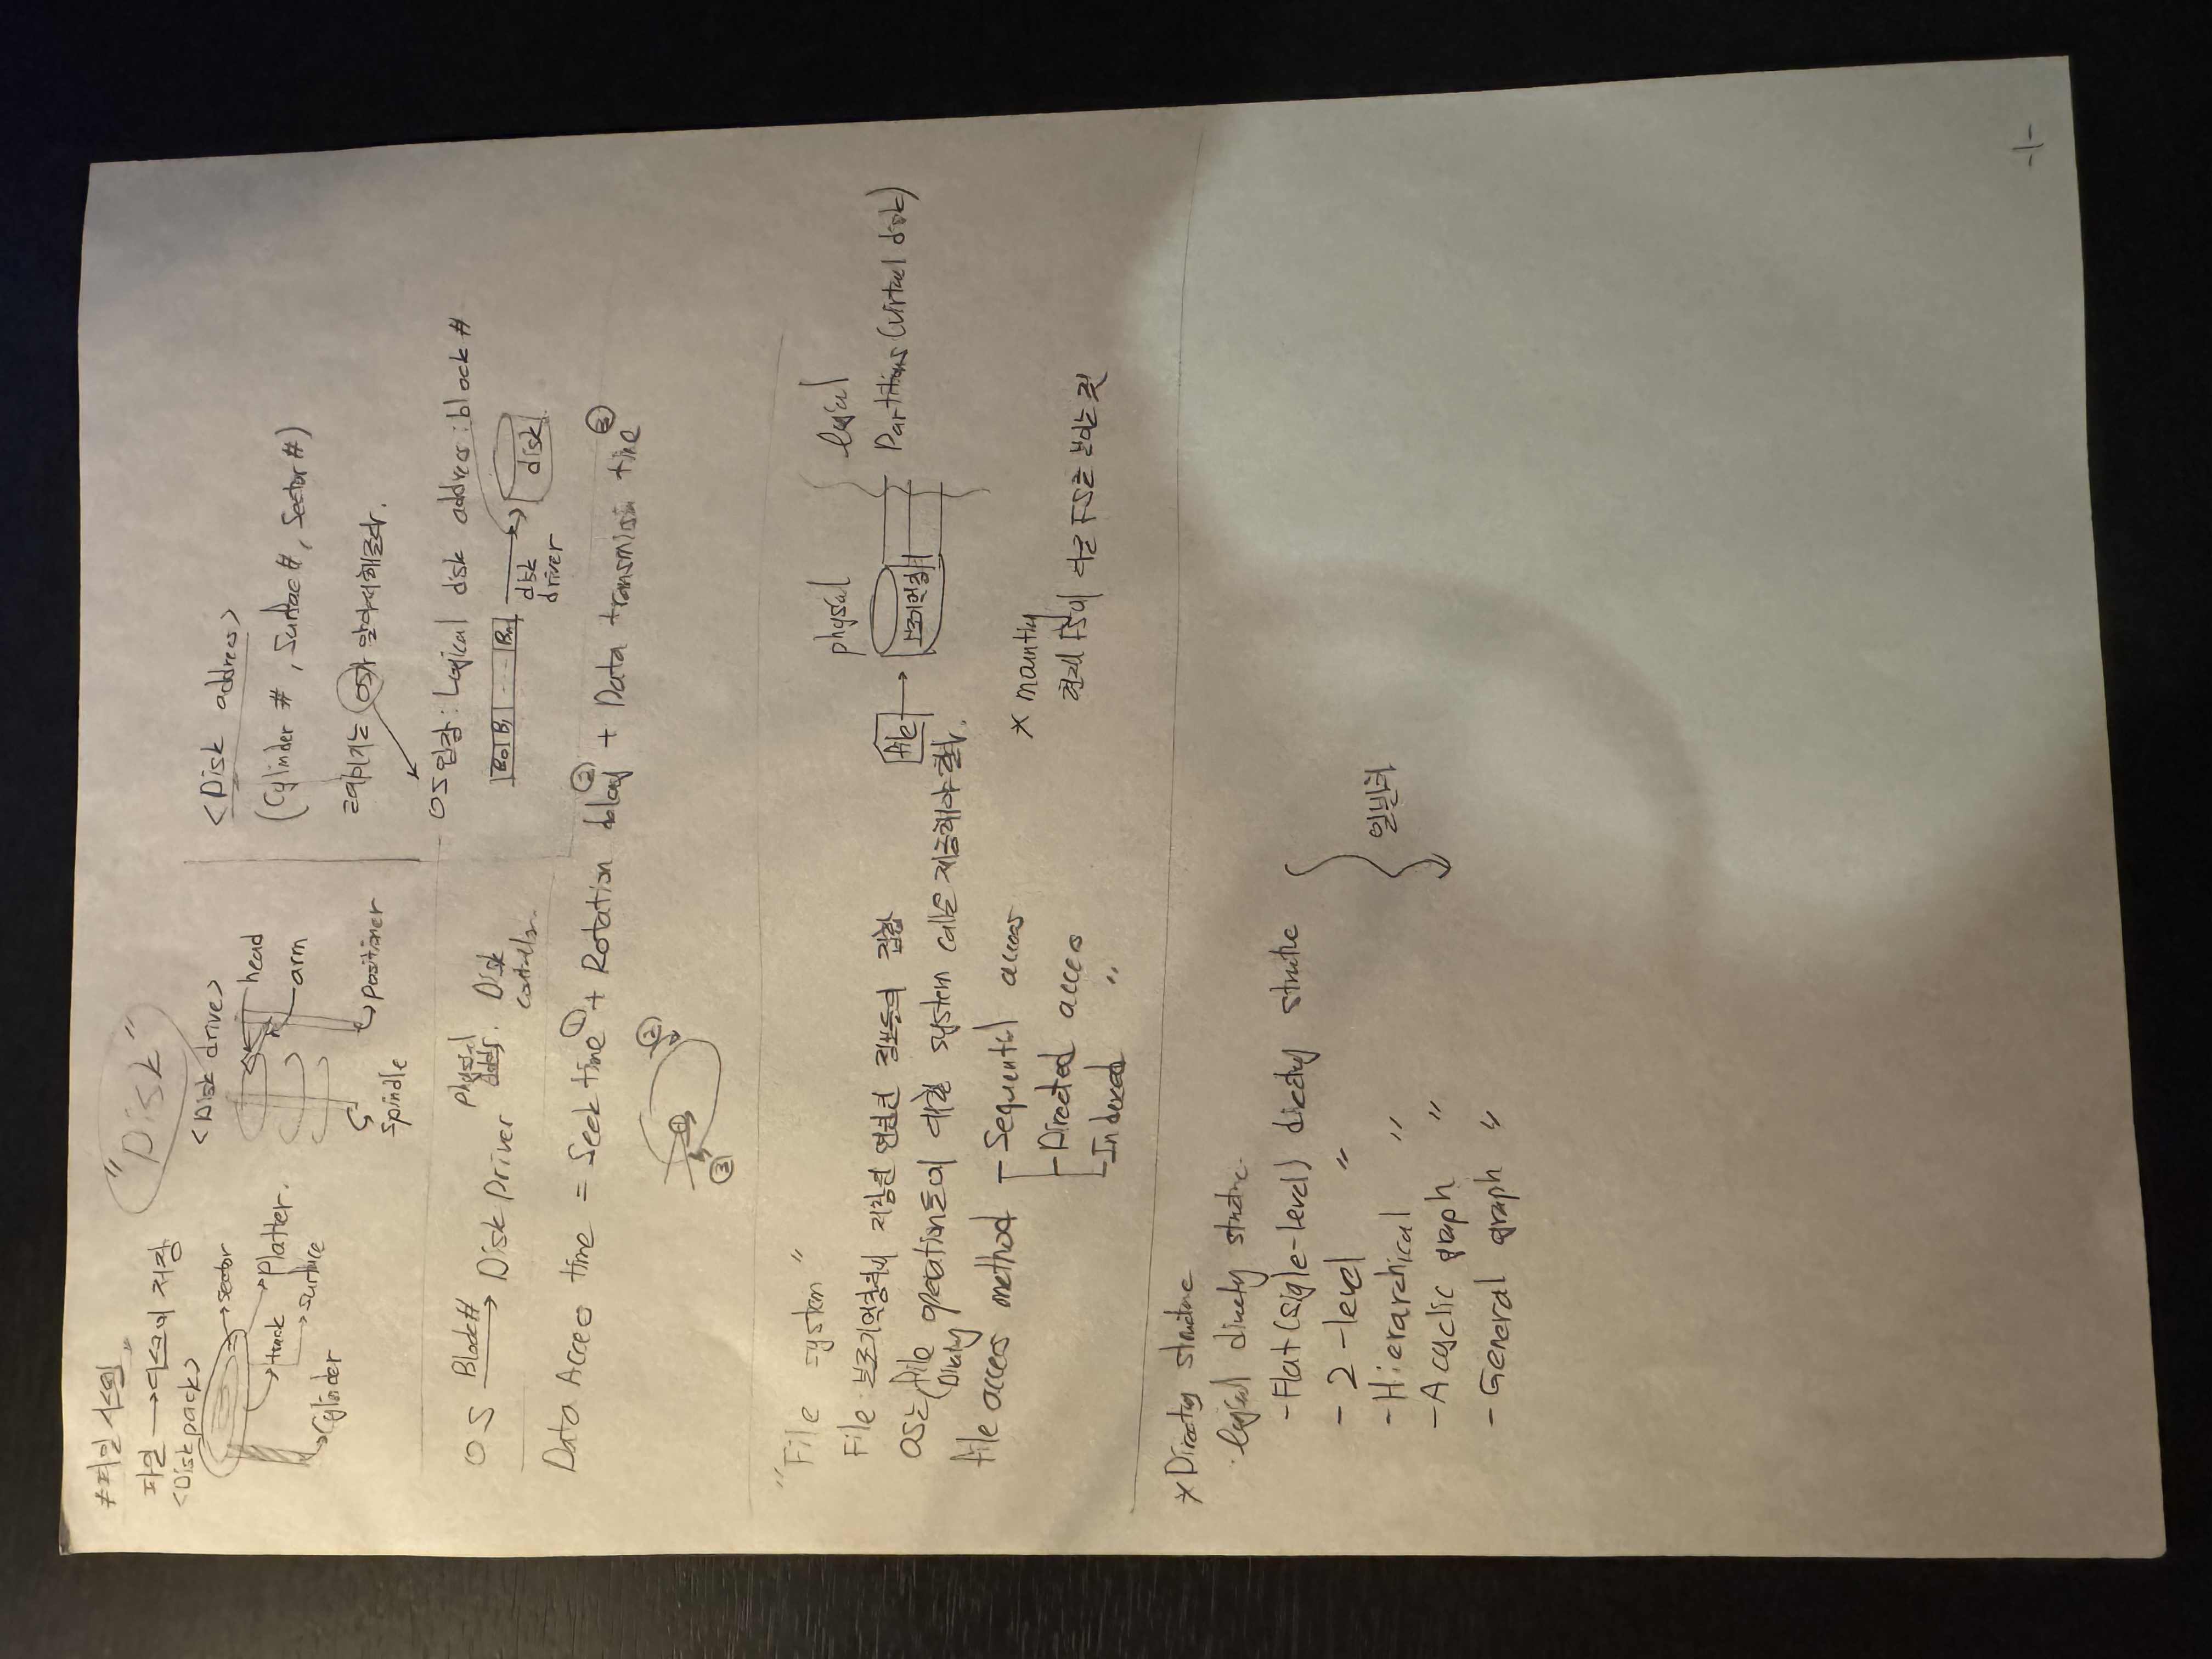 #파일 시스템
파일 → 디스크에 저장
"Disk"
<Disk pack>
sector
Platter.
track
surface
Cylinder
<Disk drive>
head
arm
positioner
spindle
<Disk address>
(Cylinder #, Surfac #, Sector #)
OS가 알아서해준다.
OS입장: Logical disk address: block #
B0 B1 ---- Bn
disk driver
disk
OS Block# → Disk Driver physical addr. Disk controller.
Data Access time = Seek time① + Rotation delay② + Data transmission time③
①
②
③
"File system"
File 보조기억장치에 저장된 연관된 정보들의 집합
OS는 file operation들에 대한 system call을 제공해야 한다.
Directory
file access method - Sequential access
- Directed access
- Indexed "
physical
logical
file → 보조기억장치
Partitions (virtual disk)
* mounting
현재 FS에 다른 FS를 붙이는 것
* Directory structure
logical directory structure.
- Flat (sigle-level) directory structure
- 2-level "
- Hierarchical "
- Acyclic graph "
- General graph "
일반화
-1-